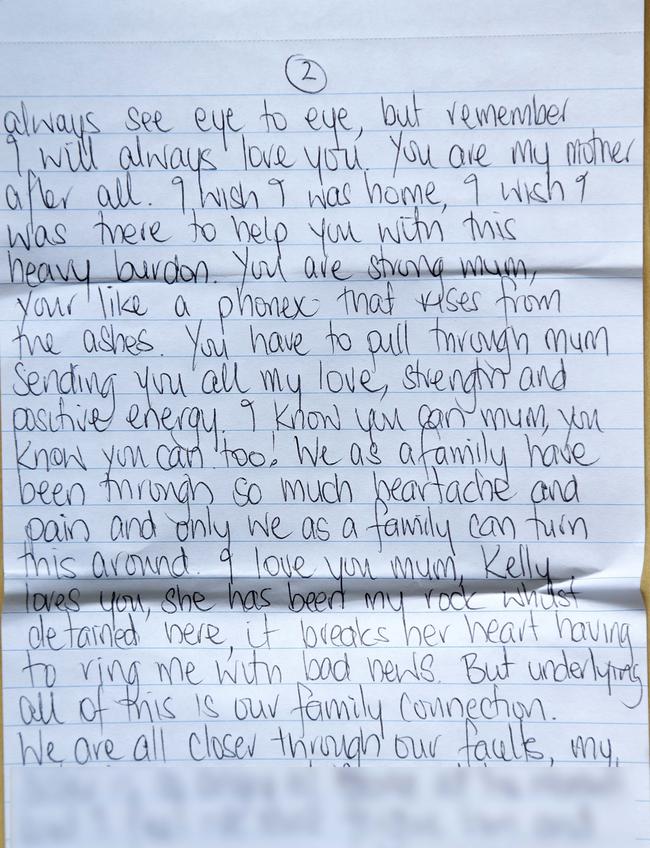 2
always see eye to eye, but remember
I will always love you. You are my mother
after all. I wish I was home, I wish I
was there to help you with this
heavy burdon. You are strong mum,
your like a phonex that rises from
the ashes. You have to pull through mum
Sending you all my love, strength and
positive energy. I know you can mum, you
know you can too! We as a family have
been through so much heartache and
pain and only we as a family can turn
this around. I love you mum, Kelly
loves you, she has been my rock whilst
detained here, it breaks her heart having
to ring me with bad news. But underlying
all of this is our family connection.
We are all closer through our faults, my,